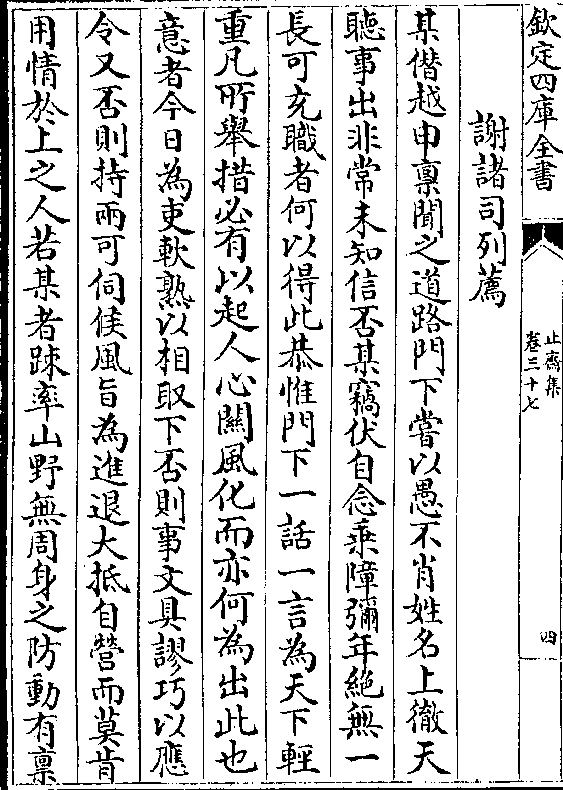 欽定四庫全書
止齋集
卷三十七
四
謝諸司列薦
某僭越申稟聞之道路門下嘗以愚不肖姓名上徹天
聽事出非常未知信否某竊伏自念乘障彌年絶無一
長可充職者何以得此恭惟門下一話一言為天下輕
重凡所舉措必有以起人心關風化而亦何為出此也
意者今日為吏軟熟以相取下否則事文具謬巧以應
令又否則持兩可伺候風旨為進退大抵自營而莫肯
用情於上之人若某者踈率山野無周身之防動有稟